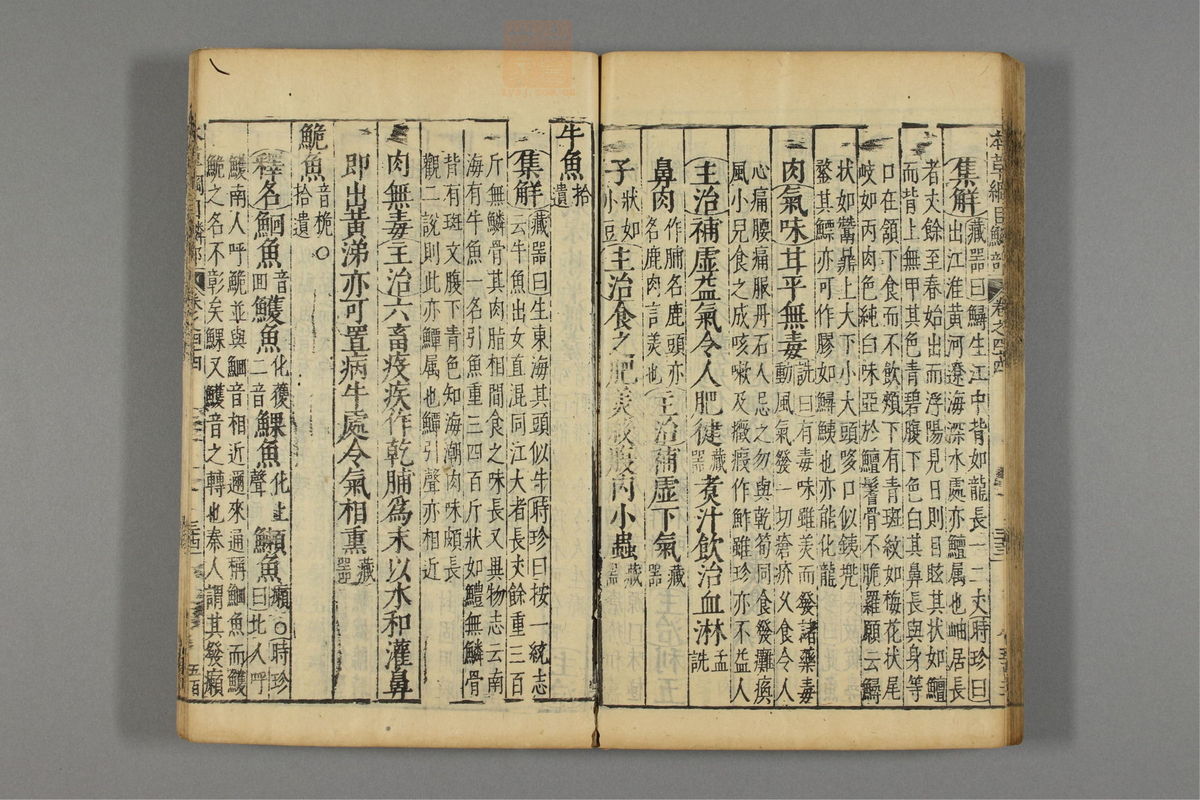 本草綱目鱗部 卷之四十四
集解 藏器曰鱘生江中背如龍長一二丈時珍曰
出江淮黃河遼海深水處亦鱣属也岫居長
者丈餘至春始出而浮陽見日則目眩其狀如鱣
而背上無甲其色青碧腹下色白其鼻長與身等
口在頷下食而不飲頰下有青斑紋如梅花狀尾
岐如丙肉色純白味亞於鱣鬐骨不脆羅願云鱘
狀如鬵鼎上大下小大頭哆口似鐵兠
鍪其鰾亦可作膠如鱁鮧也亦能化龍
肉氣味甘平無毒 詵曰有毒味雖美而發諸藥毒
動風氣發一切瘡疥久食令人
心痛腰痛服丹石人忌之勿與乾筍同食發癱瘓
風小兒食之成咳嗽及癥瘕作鮓雖珍亦不益人
主治補虛益氣令人肥健 藏器 煑汁飲治血淋 孟詵
鼻肉 作脯名鹿頭亦名鹿肉言美也 主治補虛下氣 藏器
子 狀如小豆 主治食之肥美殺腹內小蟲 藏器
牛魚 拾遺
集解 藏器曰生東海其頭似牛時珍曰按一統志
云牛魚出女直混同江大者長丈餘重三百
斤無鱗骨其肉脂相間食之味長又異物志云南
海有牛魚一名引魚重三四百斤狀如鱧無鱗骨
背有斑文腹下青色知海潮肉味頗長
觀二說則此亦鱏属也鱏引聲亦相近
肉無毒主治六畜疫疾作乾脯爲末以水和灌鼻
即出黃涕亦可置病牛處令氣相熏 藏器
鮠魚 音桅○拾遺
釋名 鮰魚 音回 鱯魚 化獲二音 鱯魚 化上聲 鱴魚 癩○時珍曰北人呼
鱯南人呼鮠並與鮰音相近邇來通稱鮰魚而鱯
鮠之名不彰矣鰥又鱯音之轉也秦人謂其發癩